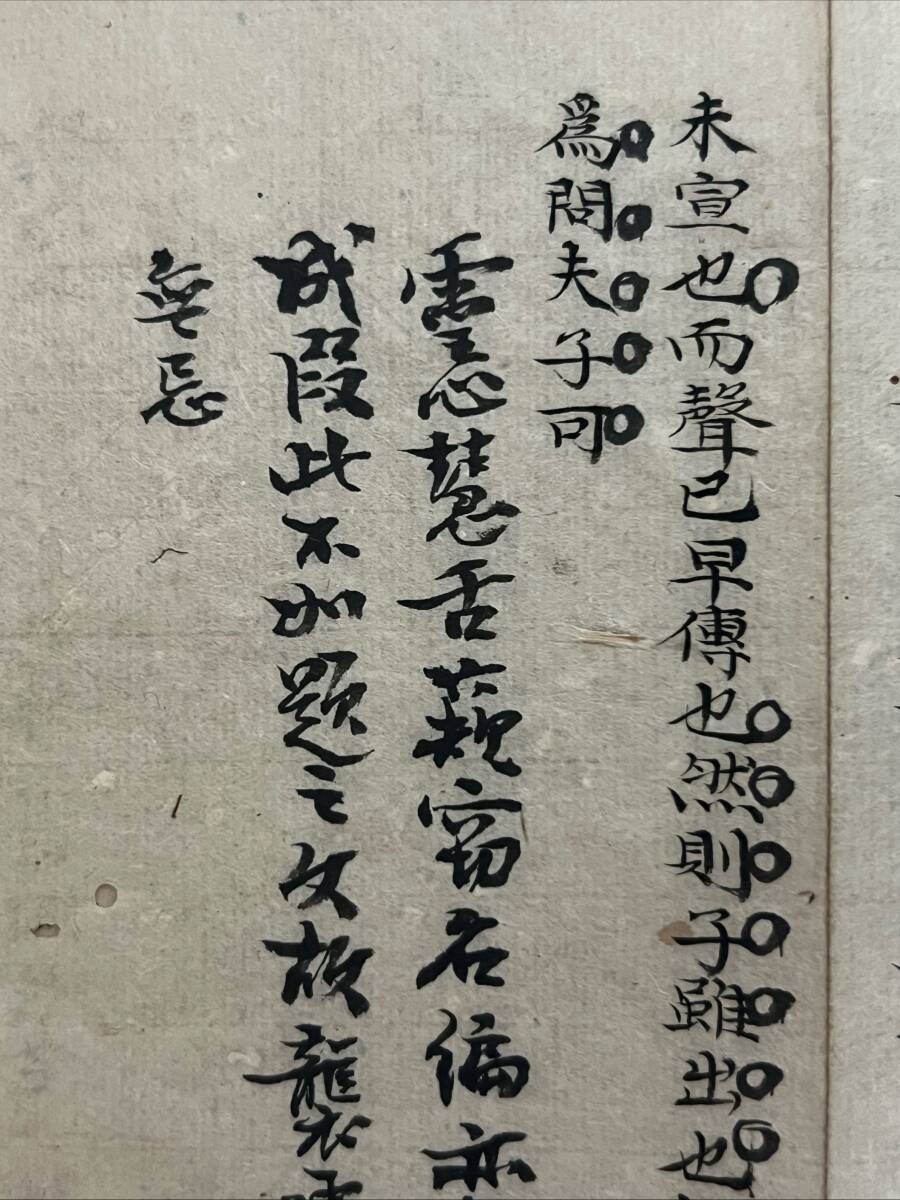 未宣也而聲已早傳也然則子雖出也
爲問夫子可
靈心慧舌藐窃名編亦
成段此不如題之文故襲
無忌